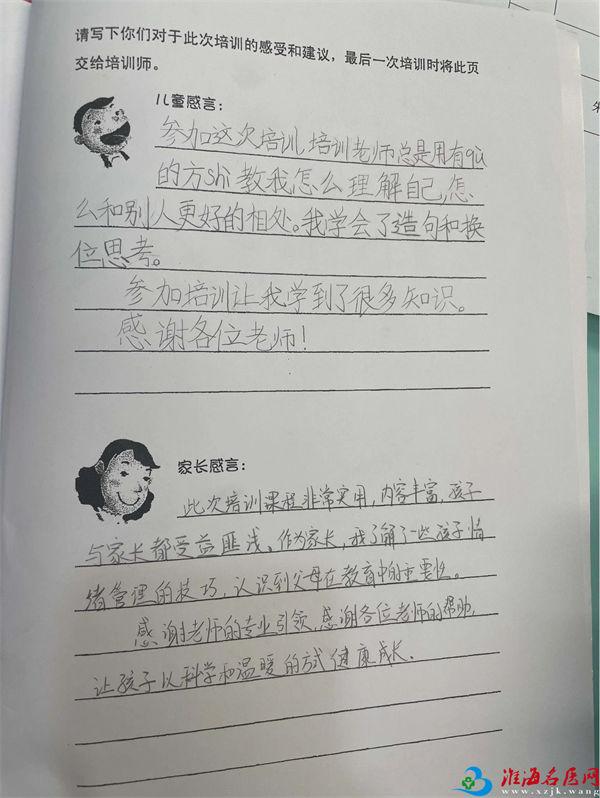 请写下你们对于此次培训的感受和建议，最后一次培训时将此页
交给培训师。
儿童感言：
参加这次培训,培训老师总是用有qù
的方shì教我怎么理解自己,怎
么和别人更好的相处。我学会了造句和换
位思考。
参加培训让我学到了很多知识。
感谢各位老师！
家长感言：
此次培训课程非常实用,内容丰富,孩子
与家长都受益匪浅、作为家长,我了解了一些孩子情
绪管理的技巧,认识到父母在教育中的重要性。
感谢老师的专业引领,感谢各位老师的帮助,
让孩子以科学和温暖的方式健康成长.
淮海名医网
www.xzjk.wang